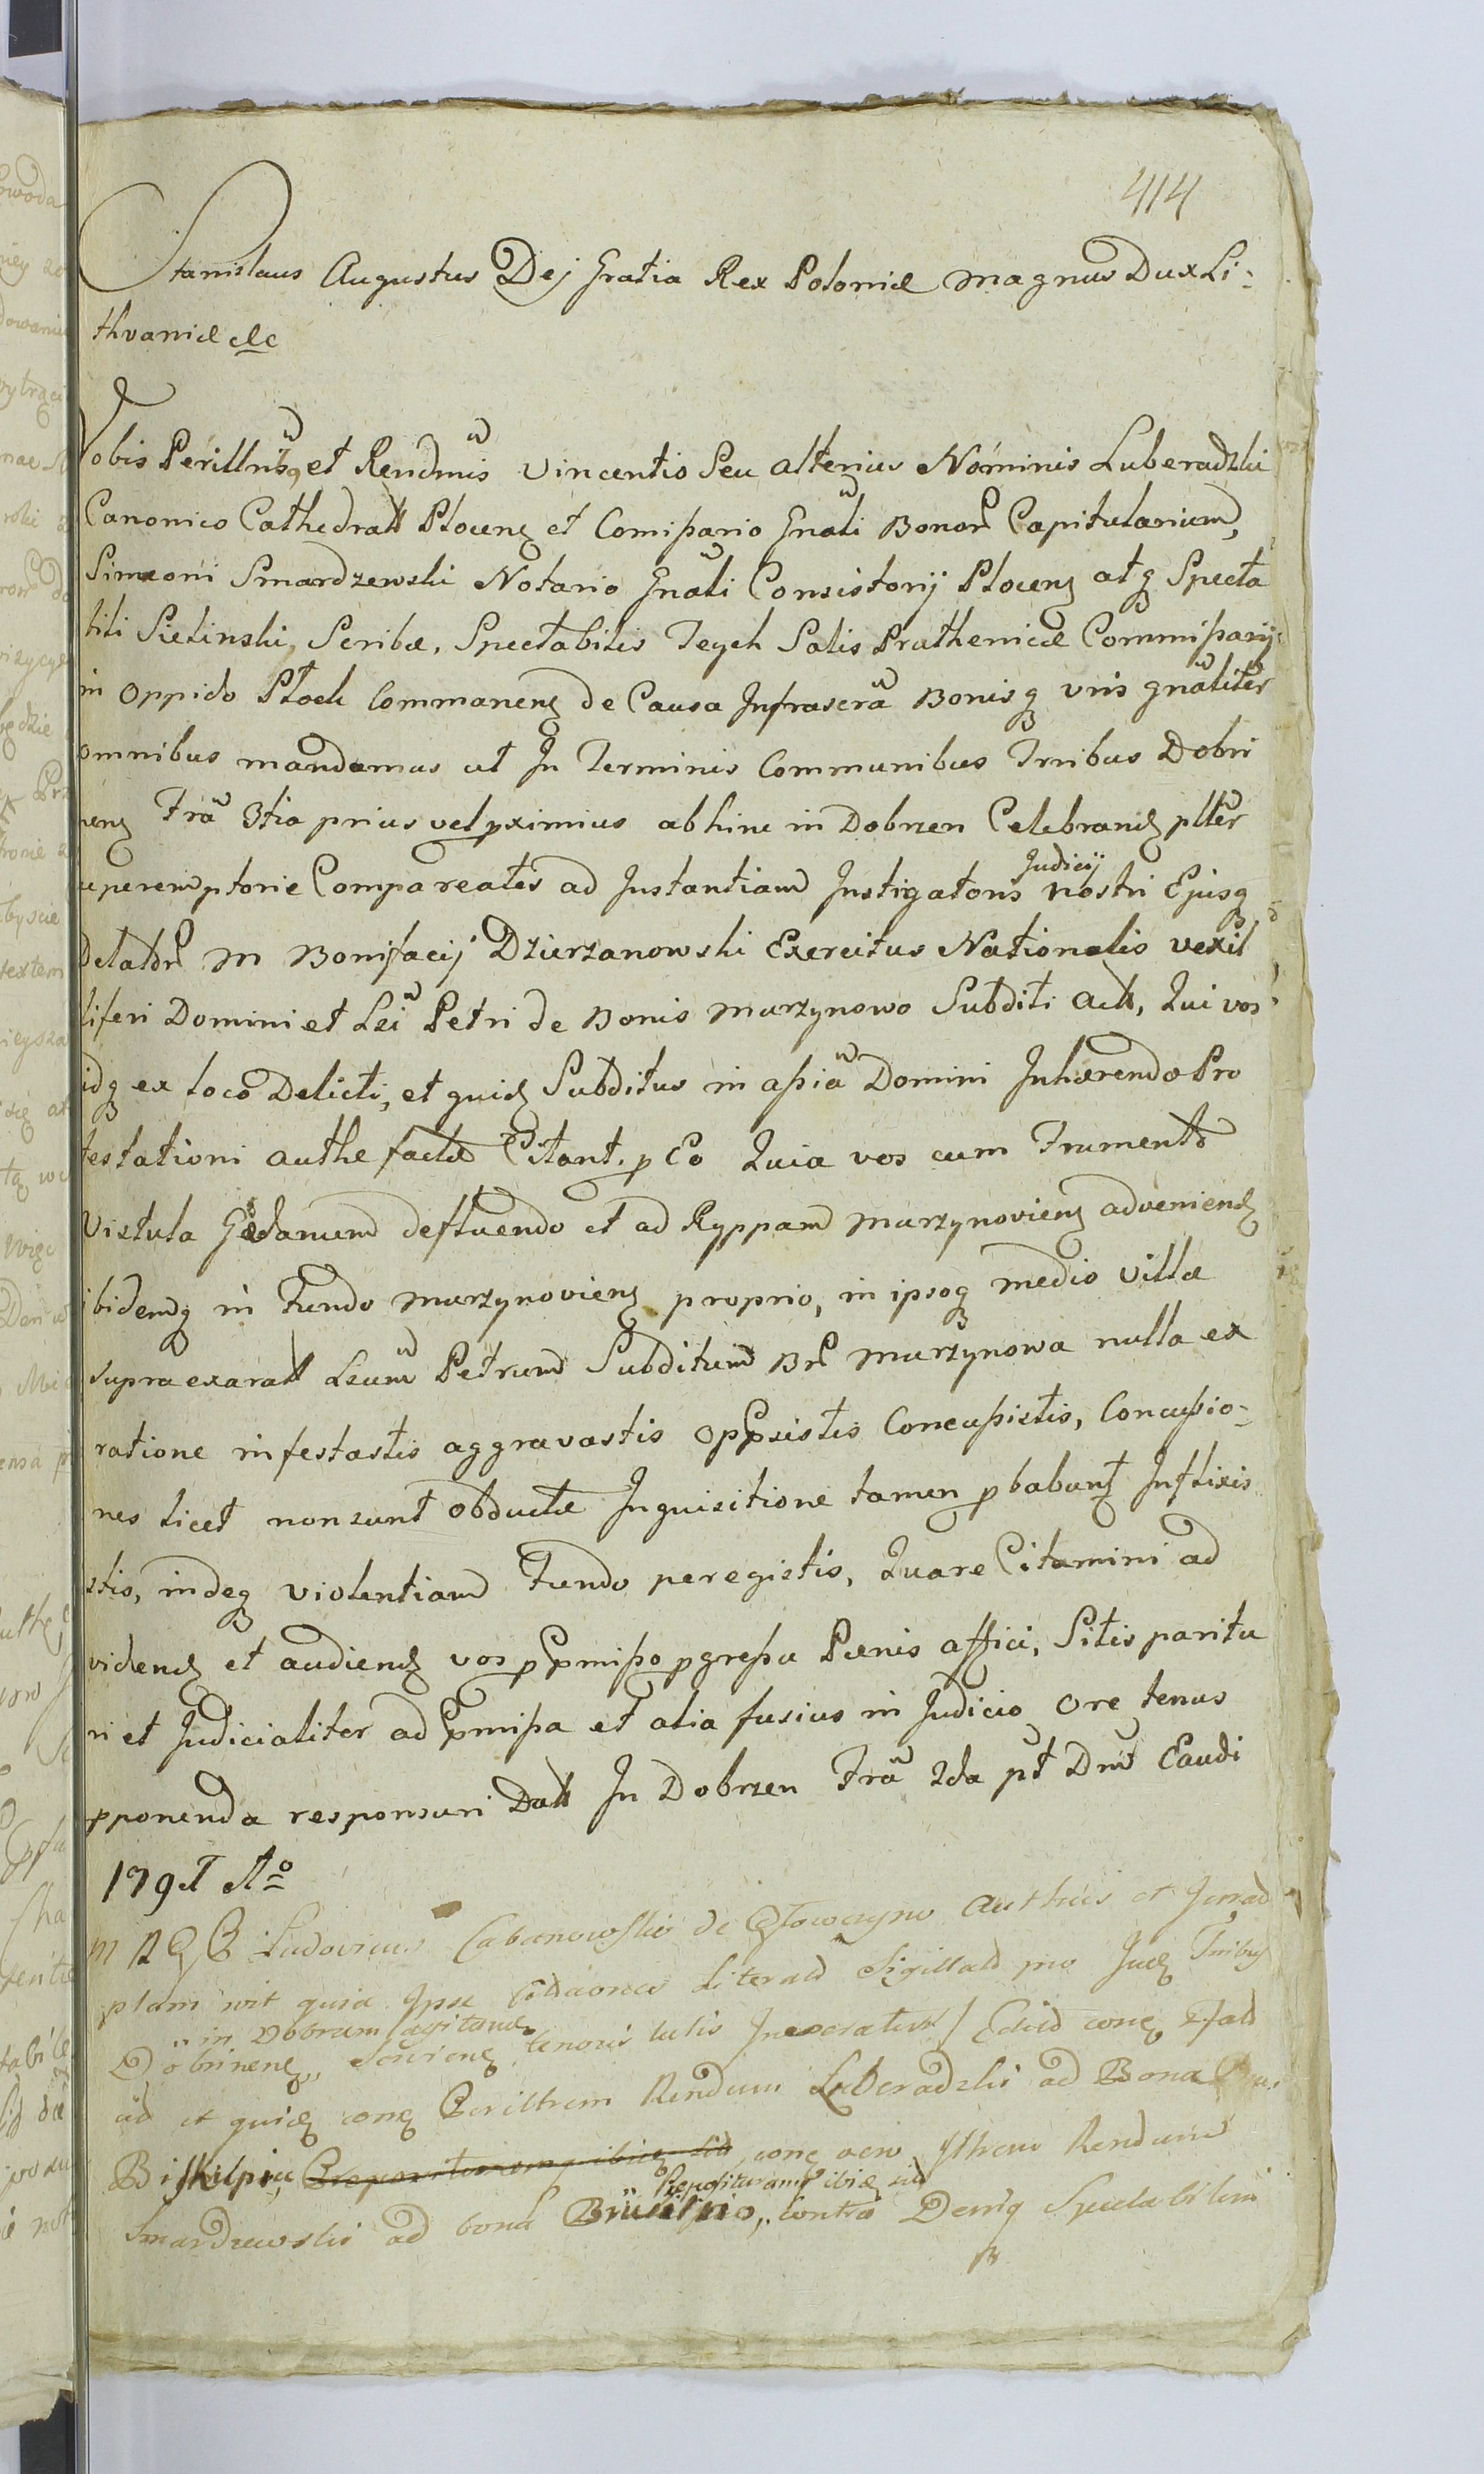 414
Stanislaus Augustus Dej Gratia Rex Poloniæ Magnus Dux Li:
thvaniæ etc
Vobis Perillribq et Rendmis Vincentio Seu alterius Nominis Luberadzki
Canonico Cathedrall Plocens et Comissario Gnali Bonor Capitularium,
Simeoni Smardzewski Notario Gnali Consistorij Plocens atq Specta
bili Sielinski, Scribæ, Spectabilis Tegeh Salis Prathenicæ Commissarij
in Oppido Plock Commanens de Causa Infrascra Bonisq vris gnaliter
omnibus mandamus ut In Terminis Communibus Trribus Dobri
nens Fra 3tia prius vel pximius abhinc in Dobrzen Celebrand pltter
peremptorie Compareatis ad Instantiam Instigatoris Judicij nostri Ejusq
Delator M Bonifacij Dzierzanowski Exercitus Nationalis vexil
liferi Domini et Lsi Petri de Bonis Murzynowo Subditi act, Qui vos
idq ex loco Delicti, et quid Subditus in assia Domini Inhærendo Pro
testationi authe factæ Citant. p Eo Quia vos cum Frumento
Vistula Gedanum defluendo et ad Ryppam Murzynoviens adveniend
ibidemq in Fundo Murzynoviens proprio, in ipsoq medio Villæ
supra exarall Lsum Petrum Subditum Br Murzynowa nulla ex
ratione infestastis aggravastis oppssistis Concussistis, Concussio-
nes licet non sunt obductæ Inquisitione tamen pbabunt Inflixis
stis, indeq violentiam Fundo peregistis, Quare Citamini ad
videnq et audienq vos p Pmisso pgressu Pænis affici, Sitis paritu
ri et Judicialiter ad Pmissa et alia fusius in Judicio ore tenus
pponenda responsuri Datt In Dobrzen Fra 2da pt Dnt Eaudi
1791 Ao
M R G Ludovicus Cabanowski de Głowczyno Authus et Jurad
plam nit quia Ipse Citaones Literald Sigillald pro Judq Trribq
Dobrinens " in Dobrzen agitand Serviens tenoris talis
ad et quidq conq Perillrem Rendum Luberadzki ad Bona
Biskupice, conq vero Illrem Rendum
" Reposituramq ibiq sid
Smardzewski ad bona, Contra Deniq Spectabilem